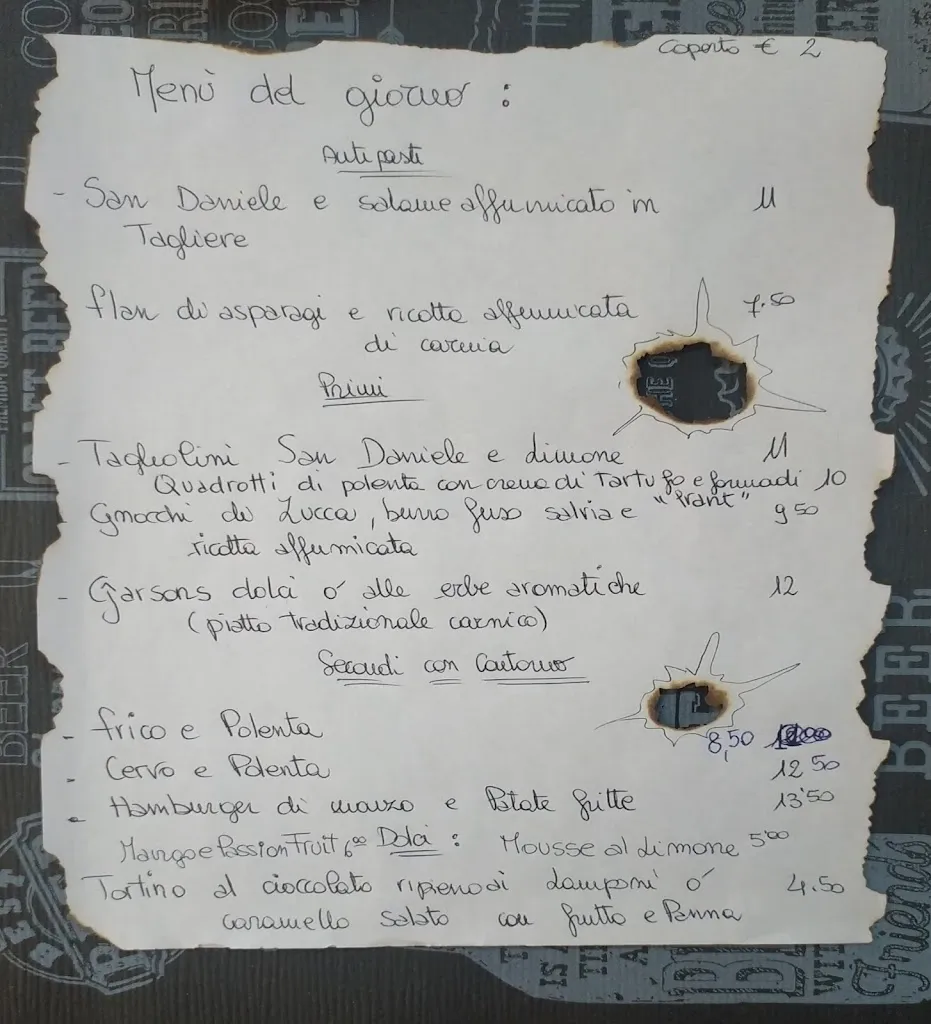 Coperto € 2
Menù del giorno :
Antipasti
- San Daniele e salame affumicato in 11
Tagliere
flan di asparagi e ricotta affumicata 7.50
di carnia
Primi
- Tagliolini San Daniele e limone 11
Quadrotti di polenta con crema di Tartufo e formadi 10
"frant"
Gnocchi di Zucca, burro fuso salvia e 9 50
ricotta affumicata
- Cjarsons dolci o' alle erbe aromatiche 12
(piatto tradizionale carnico)
Secondi con Contorno
- frico e Polenta 8,50
- Cervo e Polenta 12 50
- Hamburger di manzo e Patate fritte 13'50
Mango e Passion Fruit 6 00 Dolci : Mousse al limone 5'00
Tortino al cioccolato ripieno di lamponi o' 4.50
caramello salato con frutta e Panna
BEER
BEER
Friends
BEST